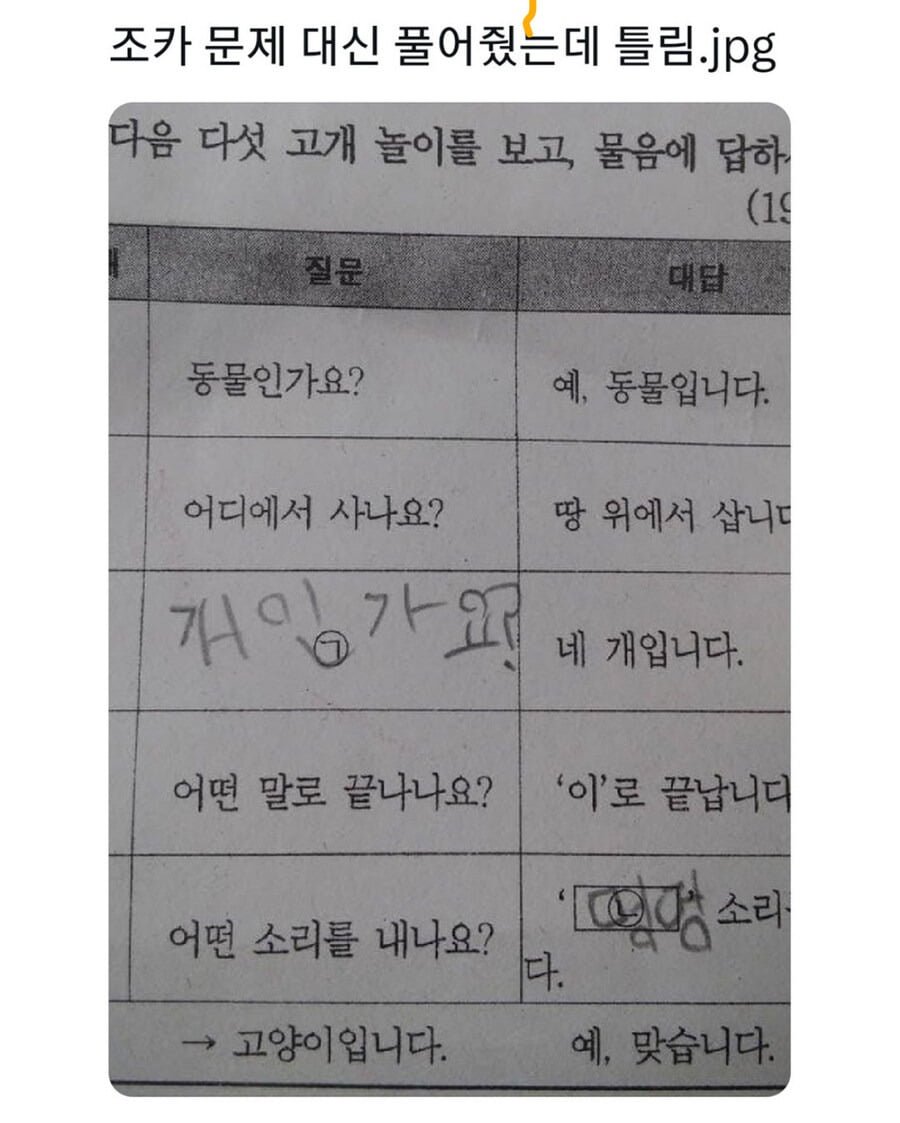 조카 문제 대신 풀어줬는데 틀림.jpg
다음 다섯 고개 놀이를 보고, 물음에 답하
(19
질문 대답
동물인가요? 예, 동물입니다.
어디에서 사나요? 땅 위에서 삽니다
개인가요? ㉠ 네 개입니다.
어떤 말로 끝나나요? ‘이’로 끝납니다
어떤 소리를 내나요? ‘㉡ 멍멍’ 소리
다.
→ 고양이입니다. 예, 맞습니다.